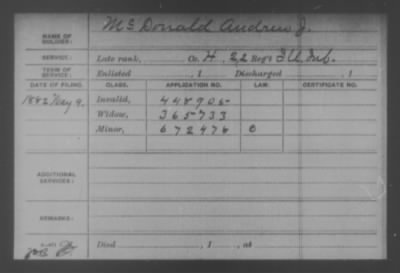 NAME OF SOLDIER: McDonald Andrew J.
SERVICE: Late rank, Co. H, 22 Reg't Ill. Inf.
TERM OF SERVICE: Enlisted , 1 Discharged , 1
DATE OF FILING. CLASS. APPLICATION NO. LAW. CERTIFICATE NO.
1882 May 9. Invalid, 448905
Widow, 365733
Minor, 672476 C
ADDITIONAL SERVICES:
REMARKS:
Died , 1 , at